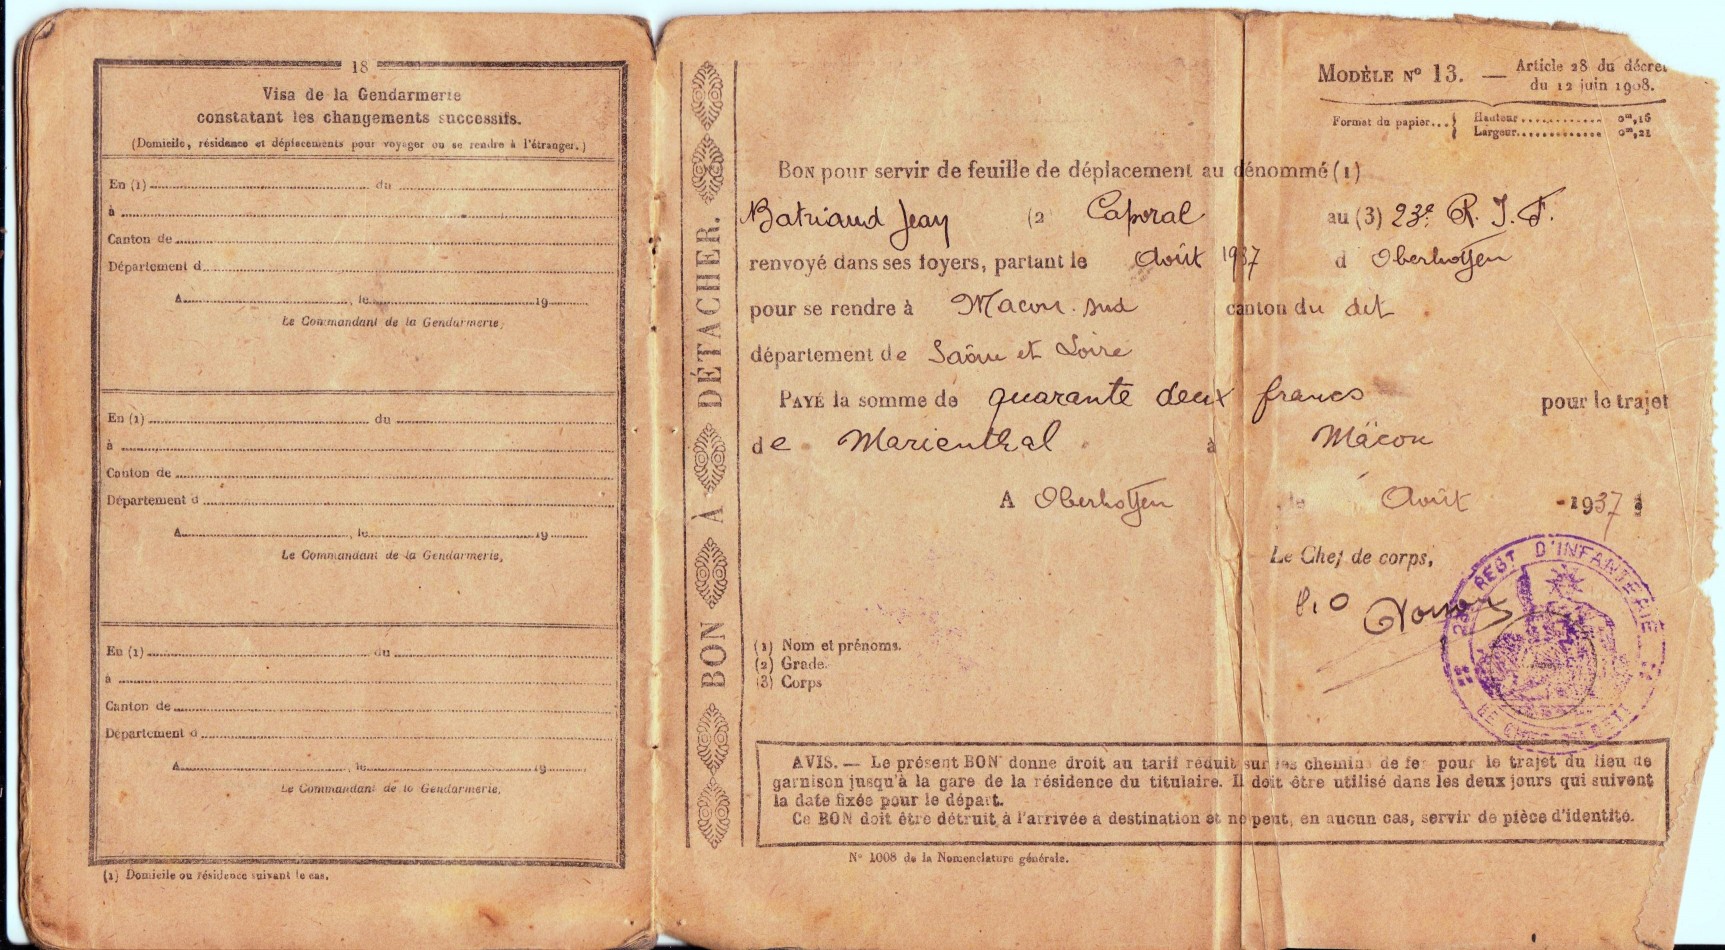 18
Visa de la Gendarmerie
constatant les changements successifs.
(Domicile, résidence et déplacements pour voyager ou se rendre à l'étranger.)
En (1) du
à
Canton de
Département d
A , le 19
Le Commandant de la Gendarmerie,
En (1) du
à
Canton de
Département d
A , le 19
Le Commandant de la Gendarmerie,
En (1) du
à
Canton de
Département d
A , le 19
Le Commandant de la Gendarmerie,
(1) Domicile ou résidence suivant le cas.
BON À DÉTACHER.
MODÈLE N° 13. — Article 28 du décret
du 12 juin 1908.
Format du papier... Hauteur 0m,16
Largeur 0m,21
BON pour servir de feuille de déplacement au dénommé (1)
Batriaud Jean (2 Caporal au (3) 23e R. I. F.
renvoyé dans ses foyers, partant le Août 1937 d Oberhoffen
pour se rendre à Macon. sud canton du dit
département de Saône et Loire
PAYÉ la somme de quarante deux francs pour le trajet
de Marienthal à Mâcon
A Oberhoffen le Août 1937
Le Chef de corps,
(1) Nom et prénoms.
(2) Grade.
(3) Corps
REGT D'INFANTERIE
AVIS. — Le présent BON donne droit au tarif réduit sur les chemins de fer pour le trajet du lieu de
garnison jusqu'à la gare de la résidence du titulaire. Il doit être utilisé dans les deux jours qui suivent
la date fixée pour le départ.
Ce BON doit être détruit à l'arrivée à destination et ne peut, en aucun cas, servir de pièce d'identité.
N° 1008 de la Nomenclature générale.